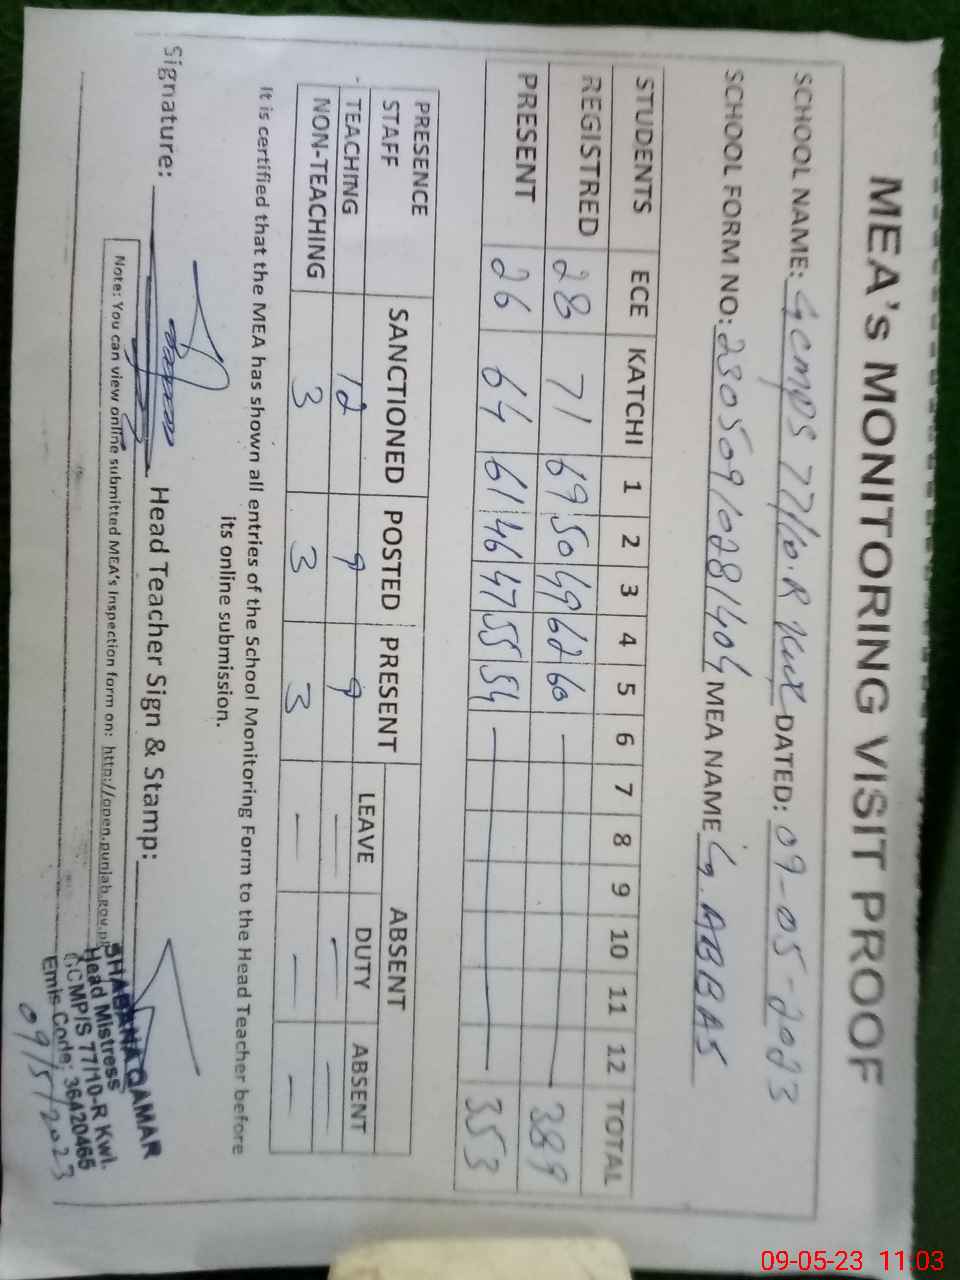 MEA's MONITORING VISIT PROOF
SCHOOL NAME: GCMPS 77/10.R KWL DATED: 09-05-2023
SCHOOL FORM NO: 230509/028/404 MEA NAME G. ABBAS
STUDENTS ECE KATCHI 1 2 3 4 5 6 7 8 9 10 11 12 TOTAL
REGISTRED 28 71 69 50 49 62 60 — 389
PRESENT 26 64 61 46 47 55 54 — 353
PRESENCE STAFF SANCTIONED POSTED PRESENT ABSENT
LEAVE DUTY ABSENT
TEACHING 12 9 9 — — —
NON-TEACHING 3 3 3 — — —
It is certified that the MEA has shown all entries of the School Monitoring Form to the Head Teacher before
its online submission.
Signature: Head Teacher Sign & Stamp:
Note: You can view online submitted MEA's Inspection form on: http://open.punjab.gov.pk
SHABANA QAMAR
Head Mistress
GCMP/S 77/10-R Kwl.
Emis Code: 36420465
09/5/2023
09-05-23 11:03